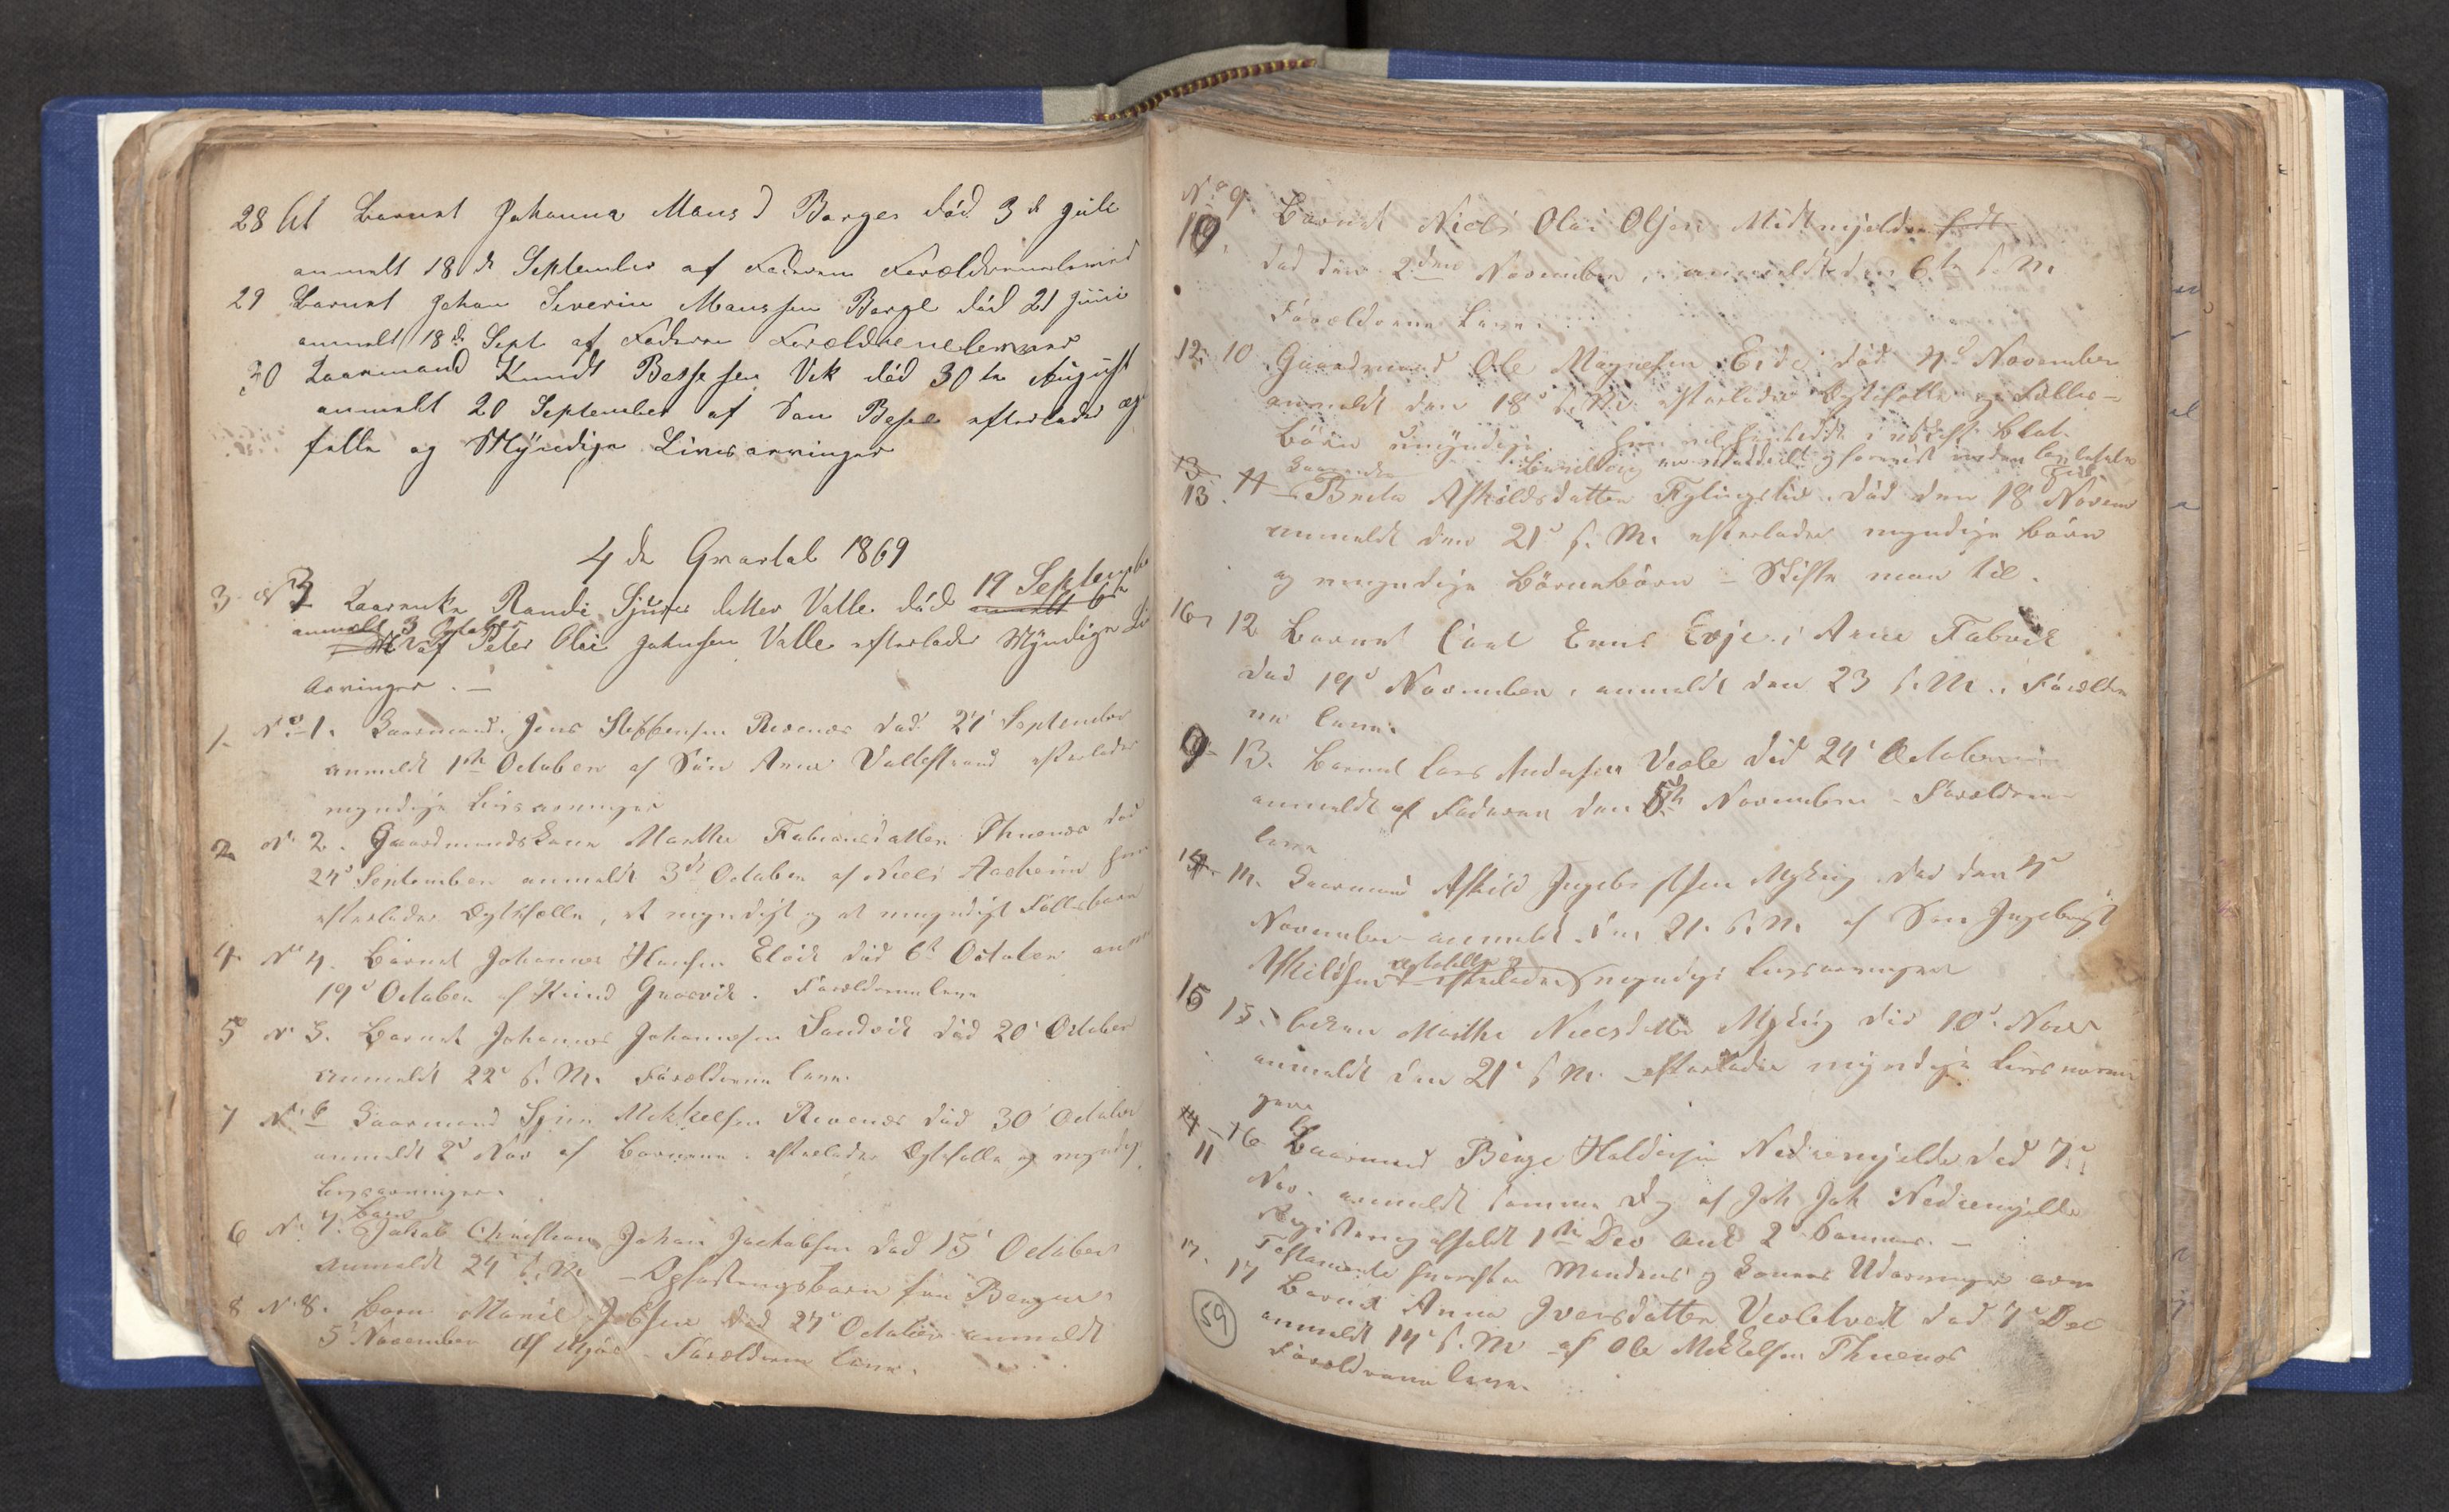 28 Barnet Johanna Mons d Borge død 3 d Juli
anmelt 18 de September af Faderen Forældrenelever
29 Barnet Johan Severin Monssen Borge død 21 Juni
anmelt 18 de Sept af Faderen Forældrenelever
30 Kaarmand Knudt Bessesen Vik død 30 te August
anmeldt 20 September af Søn Besse efterlader æg
felle og Myndige Livsarvinger
4 de Qvartal 1869
3 Kaarenke Randi Sjurs datter Valle død 19 September
anmelt 3 October
af Peter Olai Johnsen Valle efterlader Myndige Li
Arvinger. —
1. No 1. Kaarmand Jens Steffensen Revenæs død 27 September
anmeldt 1ste October af Søn Arne Vallestrand efterlader
myndige Livsarvinger
2 No 2. Gaardmandskone Marthe Fabiansdatter Thuenæs død
24 September anmeldt 3de October af Niels Aadheim
efterlader Ægtefælle, et myndigt og et umyndigt Fællesbarn
4 No 4. Barnet Johannes Hansen Elvik død 6t October
19d October af Knud Grasvik. Forældrene leve
5 No 5. Barnet Johannes Johannesen Sandvik død 20 October
anmeldt 22d s. M. Forældrene leve.
7 No 6 Kaarmand Mikkelsen Revenæs død 30 October
anmeldt 2d Nov af Børnene. efterlader Ægtefælle og myndig
Livsarvinger.
Barn
6 No 7. Jakob Christian Johan Jackobsen død 15 October
anmeldt 24d s. M — Opfostringsbarn fra Bergen
8 No 8. Barn død 27 October anmeldt
5 November af Forældrene leve.
No 9. Barnet Niels Olai Olsen Midtmjelde
10.
død den 2den November, anmeldt den 6te s. M
Forældrene leve.
12. 10 Gaardmand Ole Magnesen Eide død 4d November
anmeldt den 18d s. M. efterlader Ægtefælle og Fælles-
børn umyndige.
13
13. 11 Brita Askildsdatter Fylingslid. død den 18 Novem
anmeldt den 21d s. M. efterlader myndige børn
og umyndige Børnebørn — Skifte man til.
16 12 Barnet Arne Falevik
død 19d November, anmeldt den 23 s. M., Forældre
ne leve.
9 13. Barnet Lars Andersen Veole død 24 October
anmeldt af Faderen den 5te November — Forældrene
leve
14. Kaarmand Askild Ingebrigtsen Myking død den 4d
November anmeldt den 21. s. M. af Søn Ingebrigt
ægtefælle og
Askildsen efterlader myndige Livsarvinger
15 15. Marthe Nielsdatter Myking død 10d Novr
anmeldt den 21d s M. efterlader myndige Livsarvin
gere
11 16 Kaarmand Børge Haldorsen Nedremjelde død 7d
Nov. anmeldt samme Dag af Joh Joh Nedremjelde
Registrering afholdt 1ste Dec Auct 2d samme. —
Testamente hvorefter Mandens og Konens Udarvinger arve
17. 17 Barnet Anna Iversdatter Veoletvedt død 7d Dec
anmeldt 14d s. M af Ole Mikkelsen Thuenæs
Forældrene leve.
59